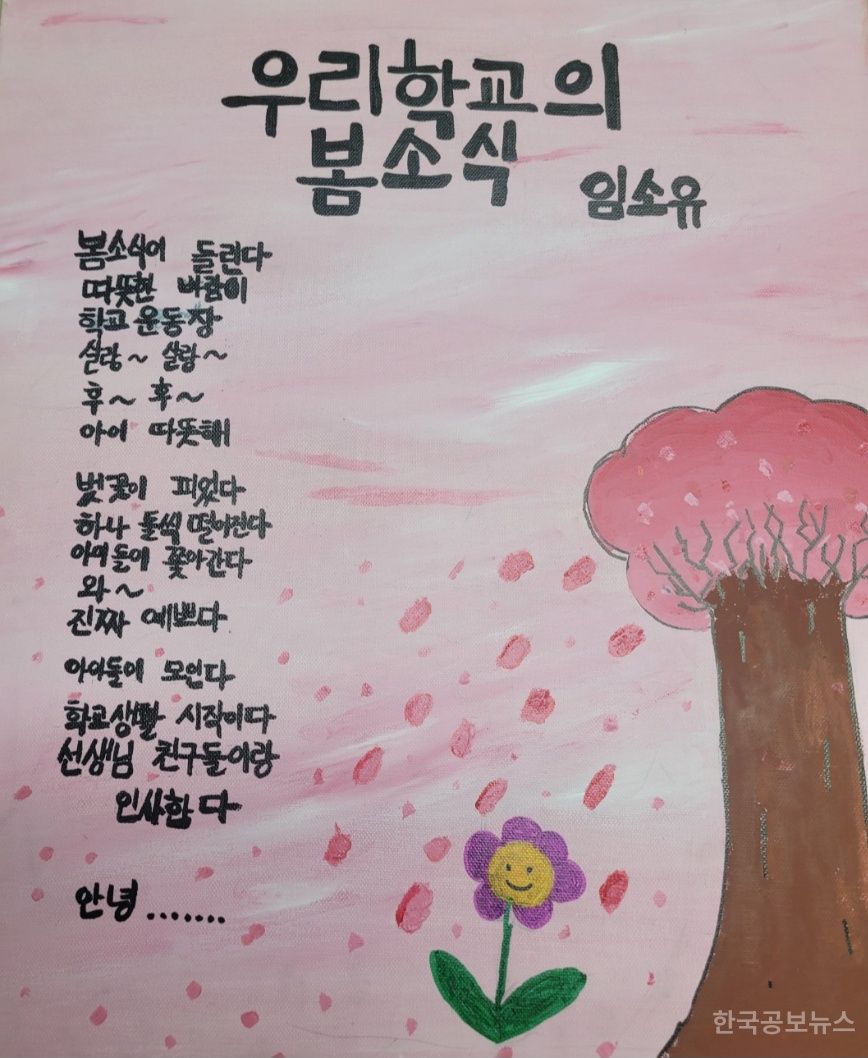 우리학교의
봄소식
임소유
봄소식이 들린다
따뜻한 바람이
학교 운동장
살랑~ 살랑~
후~ 후~
아이 따뜻해!
벚꽃이 피었다
하나 둘씩 떨어진다
아이들이 쫓아간다
와~
진짜 예쁘다
아이들이 모인다
학교생활 시작이다
선생님 친구들이랑
인사한다
안녕.......
한국공보뉴스